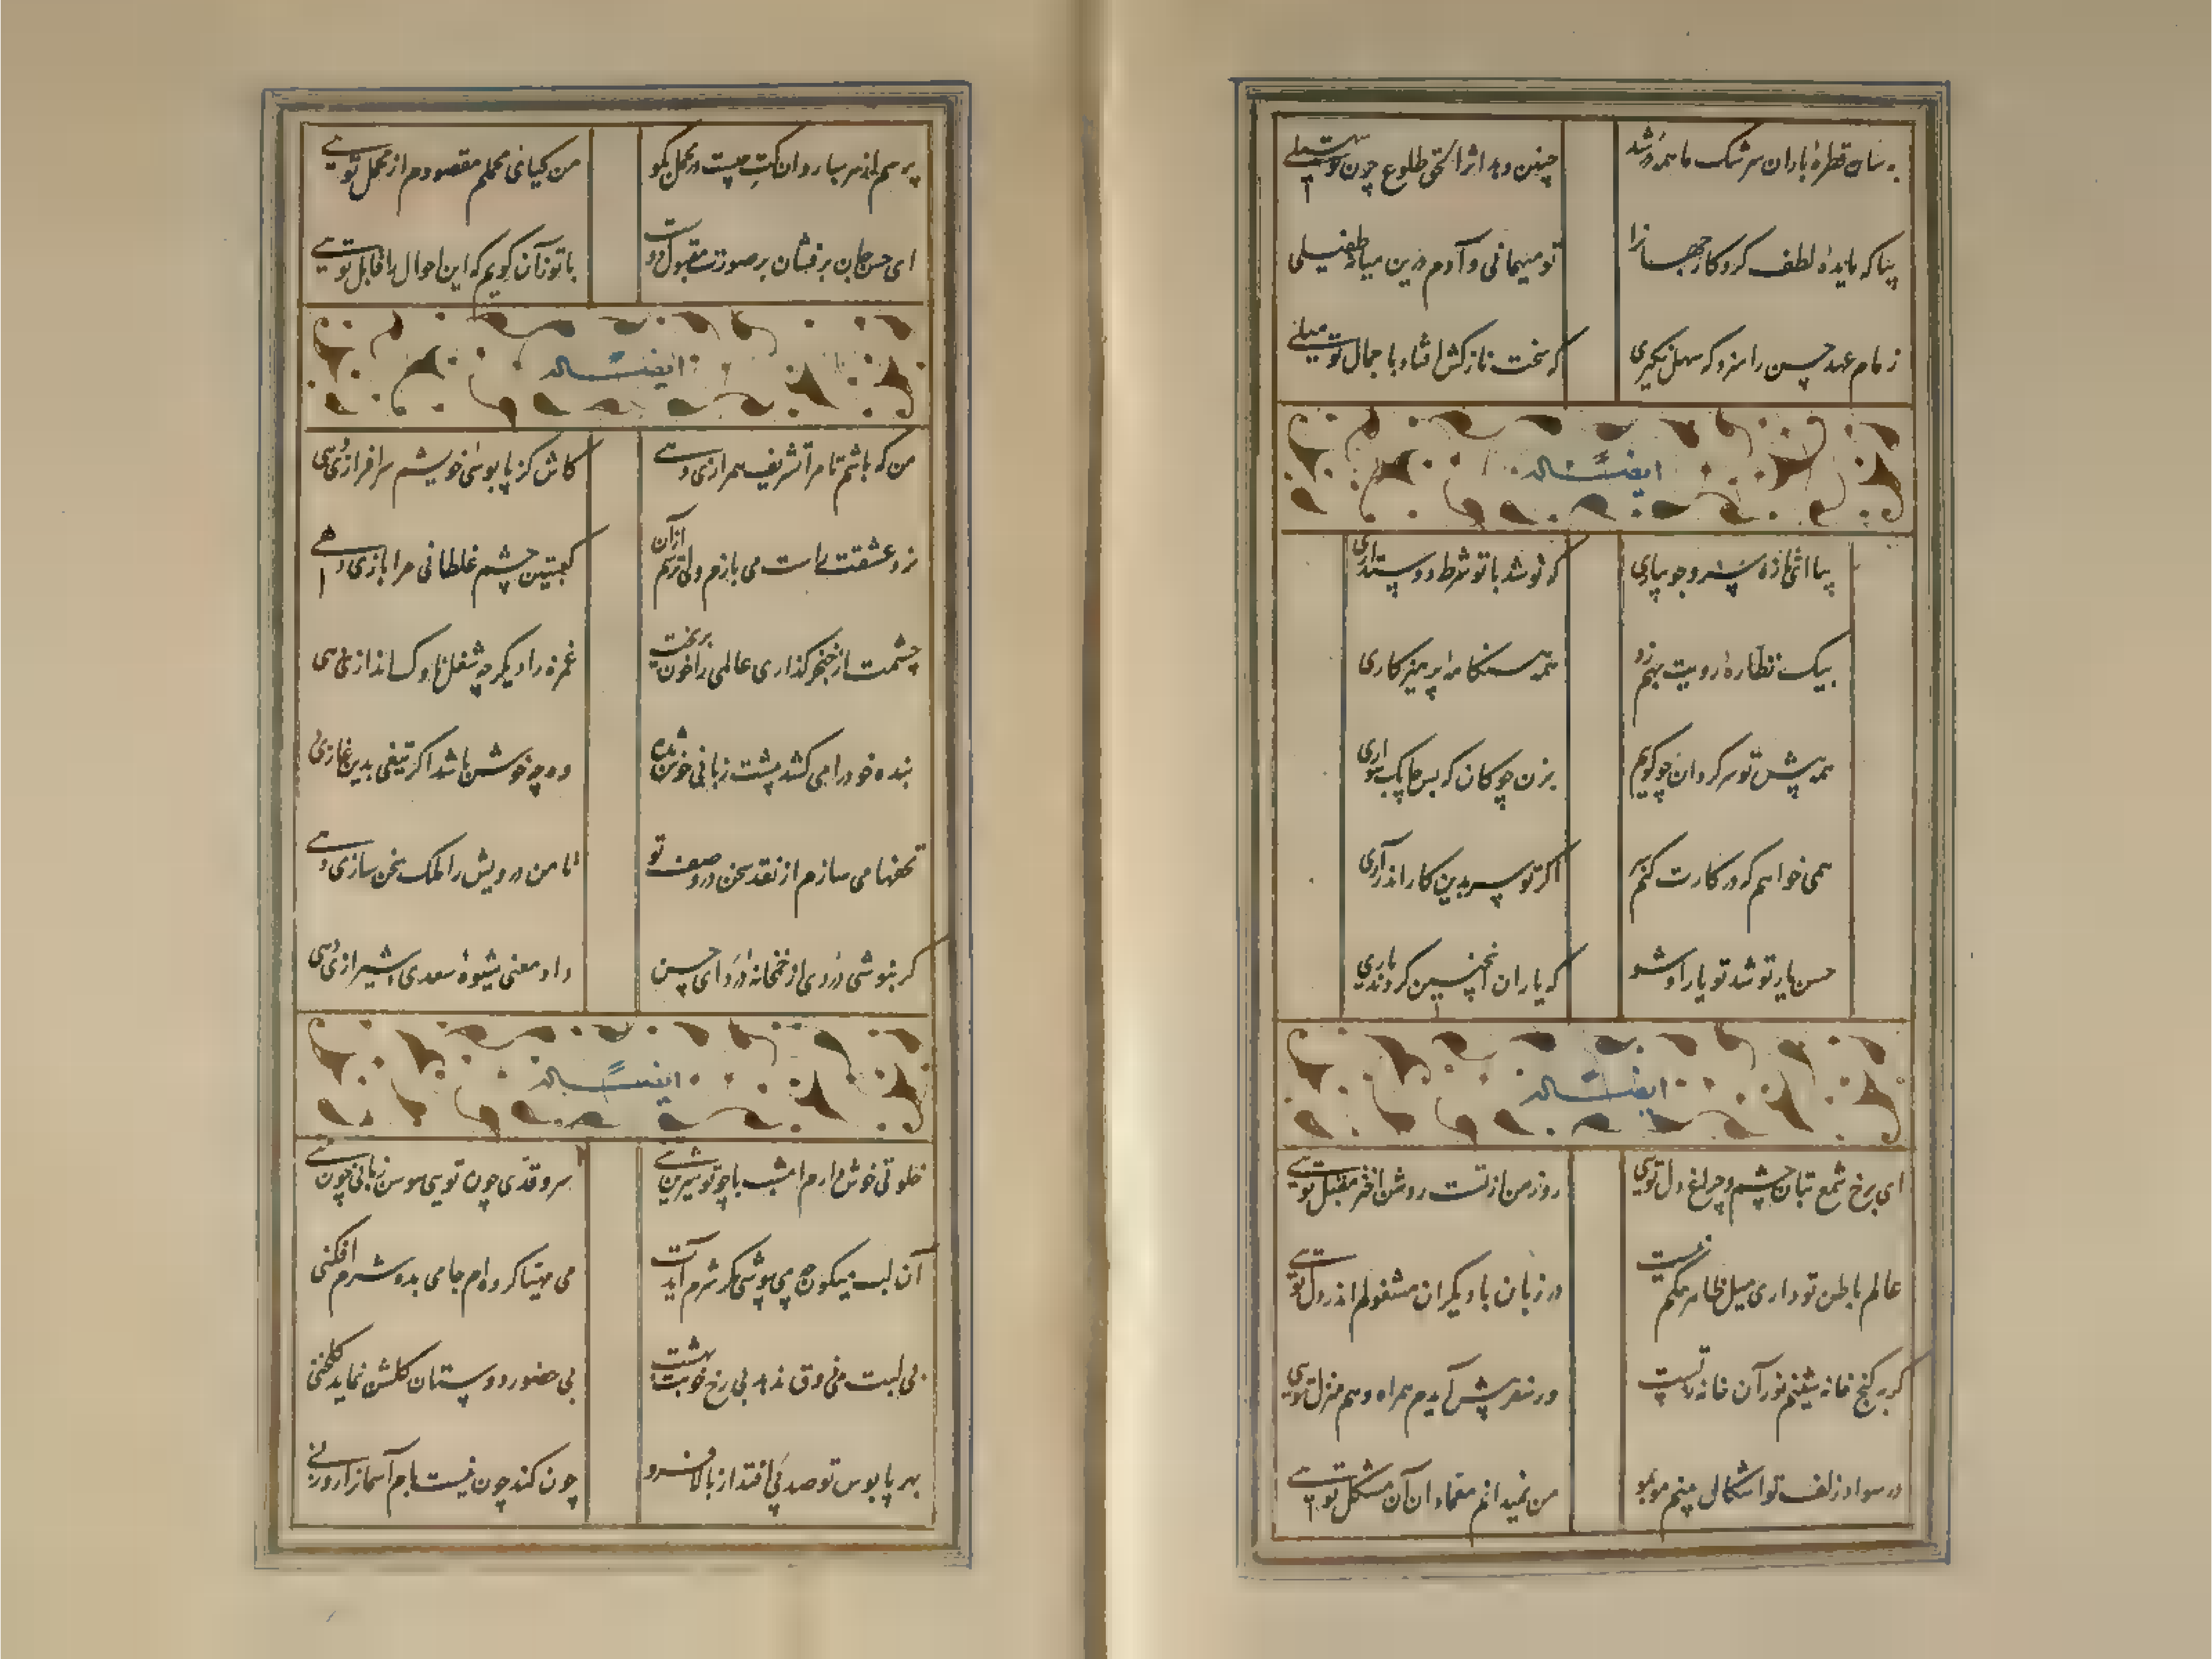 به سان قطرهٔ باران سرشک ما همه در شد
چنین دهد اثر الحق طلوع چون تو سهیلی
بیا که مایدهٔ لطف کردکار جهانرا
تو میهمانی و آدم درین میانه طفیلی
زمام عهد حسن را مزو که سهل نگیری
که سخت نازکش افتاد با جمال تو میلی
ایضاً له
بیا ای تازه سرو جویباری
که نو شد با تو شرط دوستداری
بیک نظاره رویت بهم زد
همه هنگامه پرهیزکاری
همه پیش تو سرگردان چو گویم
بزن چوکان که بس چابک سواری
همی خواهم که در کارت کنم سر
اگر تو سر بدین کار اندر آری
حسن یار تو شد تو یار او شو
که یاران اینچنین کردند یاری
ایضاً له
ای برخ شمع تبان چشم و چراغ دل تویی
روز من از تست روشن اختر مقبل تویی
عالم باطن تو داری میل ظاهر هکم نیست
در زبان با دیگران مشغولم اندر دل تویی
گر به کنج خانه بنشینم نور آن خانه تست
ور سفر پیش آیدم همراه و هم منزل تویی
در سواد زلف تو اشکالی بینم مو بمو
من نمیدانم مقدار آن آن مشکل تویی
پرسم از هر ساروان کت چیست در محمل بگو
من کیانی محملم مقصودم از محمل تویی
ای حسن جان برفشان بر صورت مقبول دوست
با تو زان گویم که این احوال را قابل تویی
ایضاً له
من که باشم تا مرا تشریف همرازی دهی
کاش کز پابوسی خویشم سرافرازی دهی
نرد عشقت راست می بازم ولی ترسم از آن
کعبتین چشم غلطانی مرا بازی دهی
چشمت از خنجر گذاری عالمی را خون بریخت
غمزه را دیگر چه شغل ناوک اندازی دهی
بنده خود را می کشد پشت زبانی خوش شده
وه چه خوش باشد اگر تیغی بدین غازی دهی
تحفها می سازم از نقد سخن در وصف تو
تا من درویش را ملک سخن سازی دهی
گر بنوشی دردی از خمخانه درد ای حسن
داد معنی شیوهٔ سعدی شیرازی دهی
ایضاً له
خلوتی خوش دارم امشب با چو تو شیرین
سرو قدی چون تویی سوسن زبانی چون
آن لب میگون چه می پوشی مگر شرم آیدت
می مهیا کرده ام جامی بده شرم افکنی
بی لبت می ذوق ندهد بی رخ خوبت بهشت
بی حضور دوستان گلشن نماید گلخنی
بهر پابوس تو صد پی افتد از بالا فرو
چون کند چون نیست بام آسمانرا روزنی